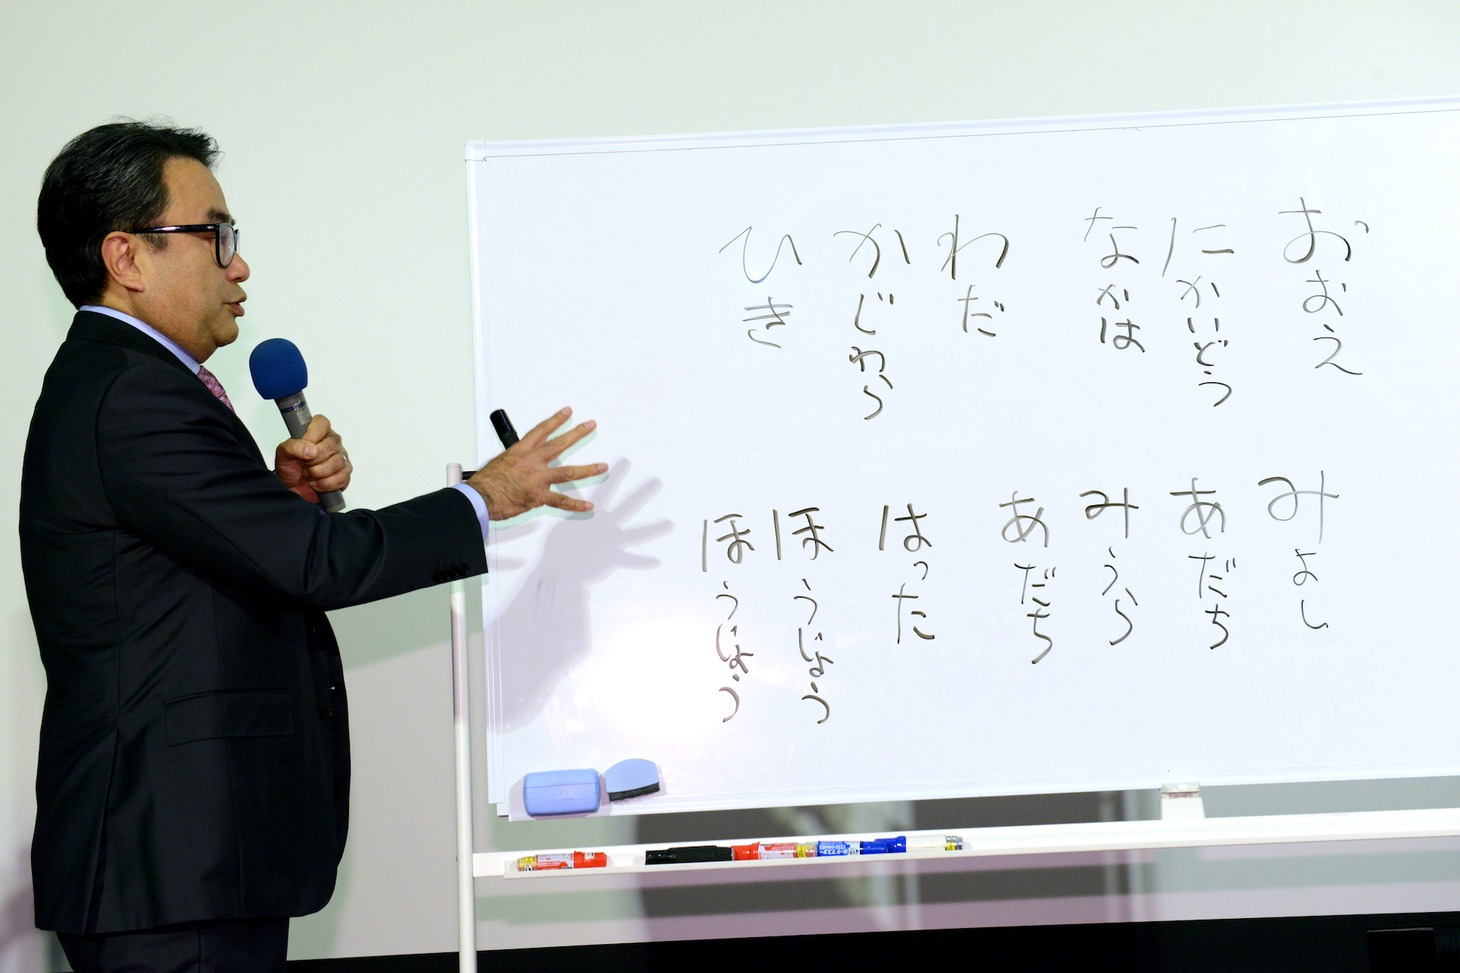 おおえ
にかいどう
なかは
わだ
かじわら
ひき
みよし
あだち
みうら
あだち
はった
ほうじょう
ほうじょう